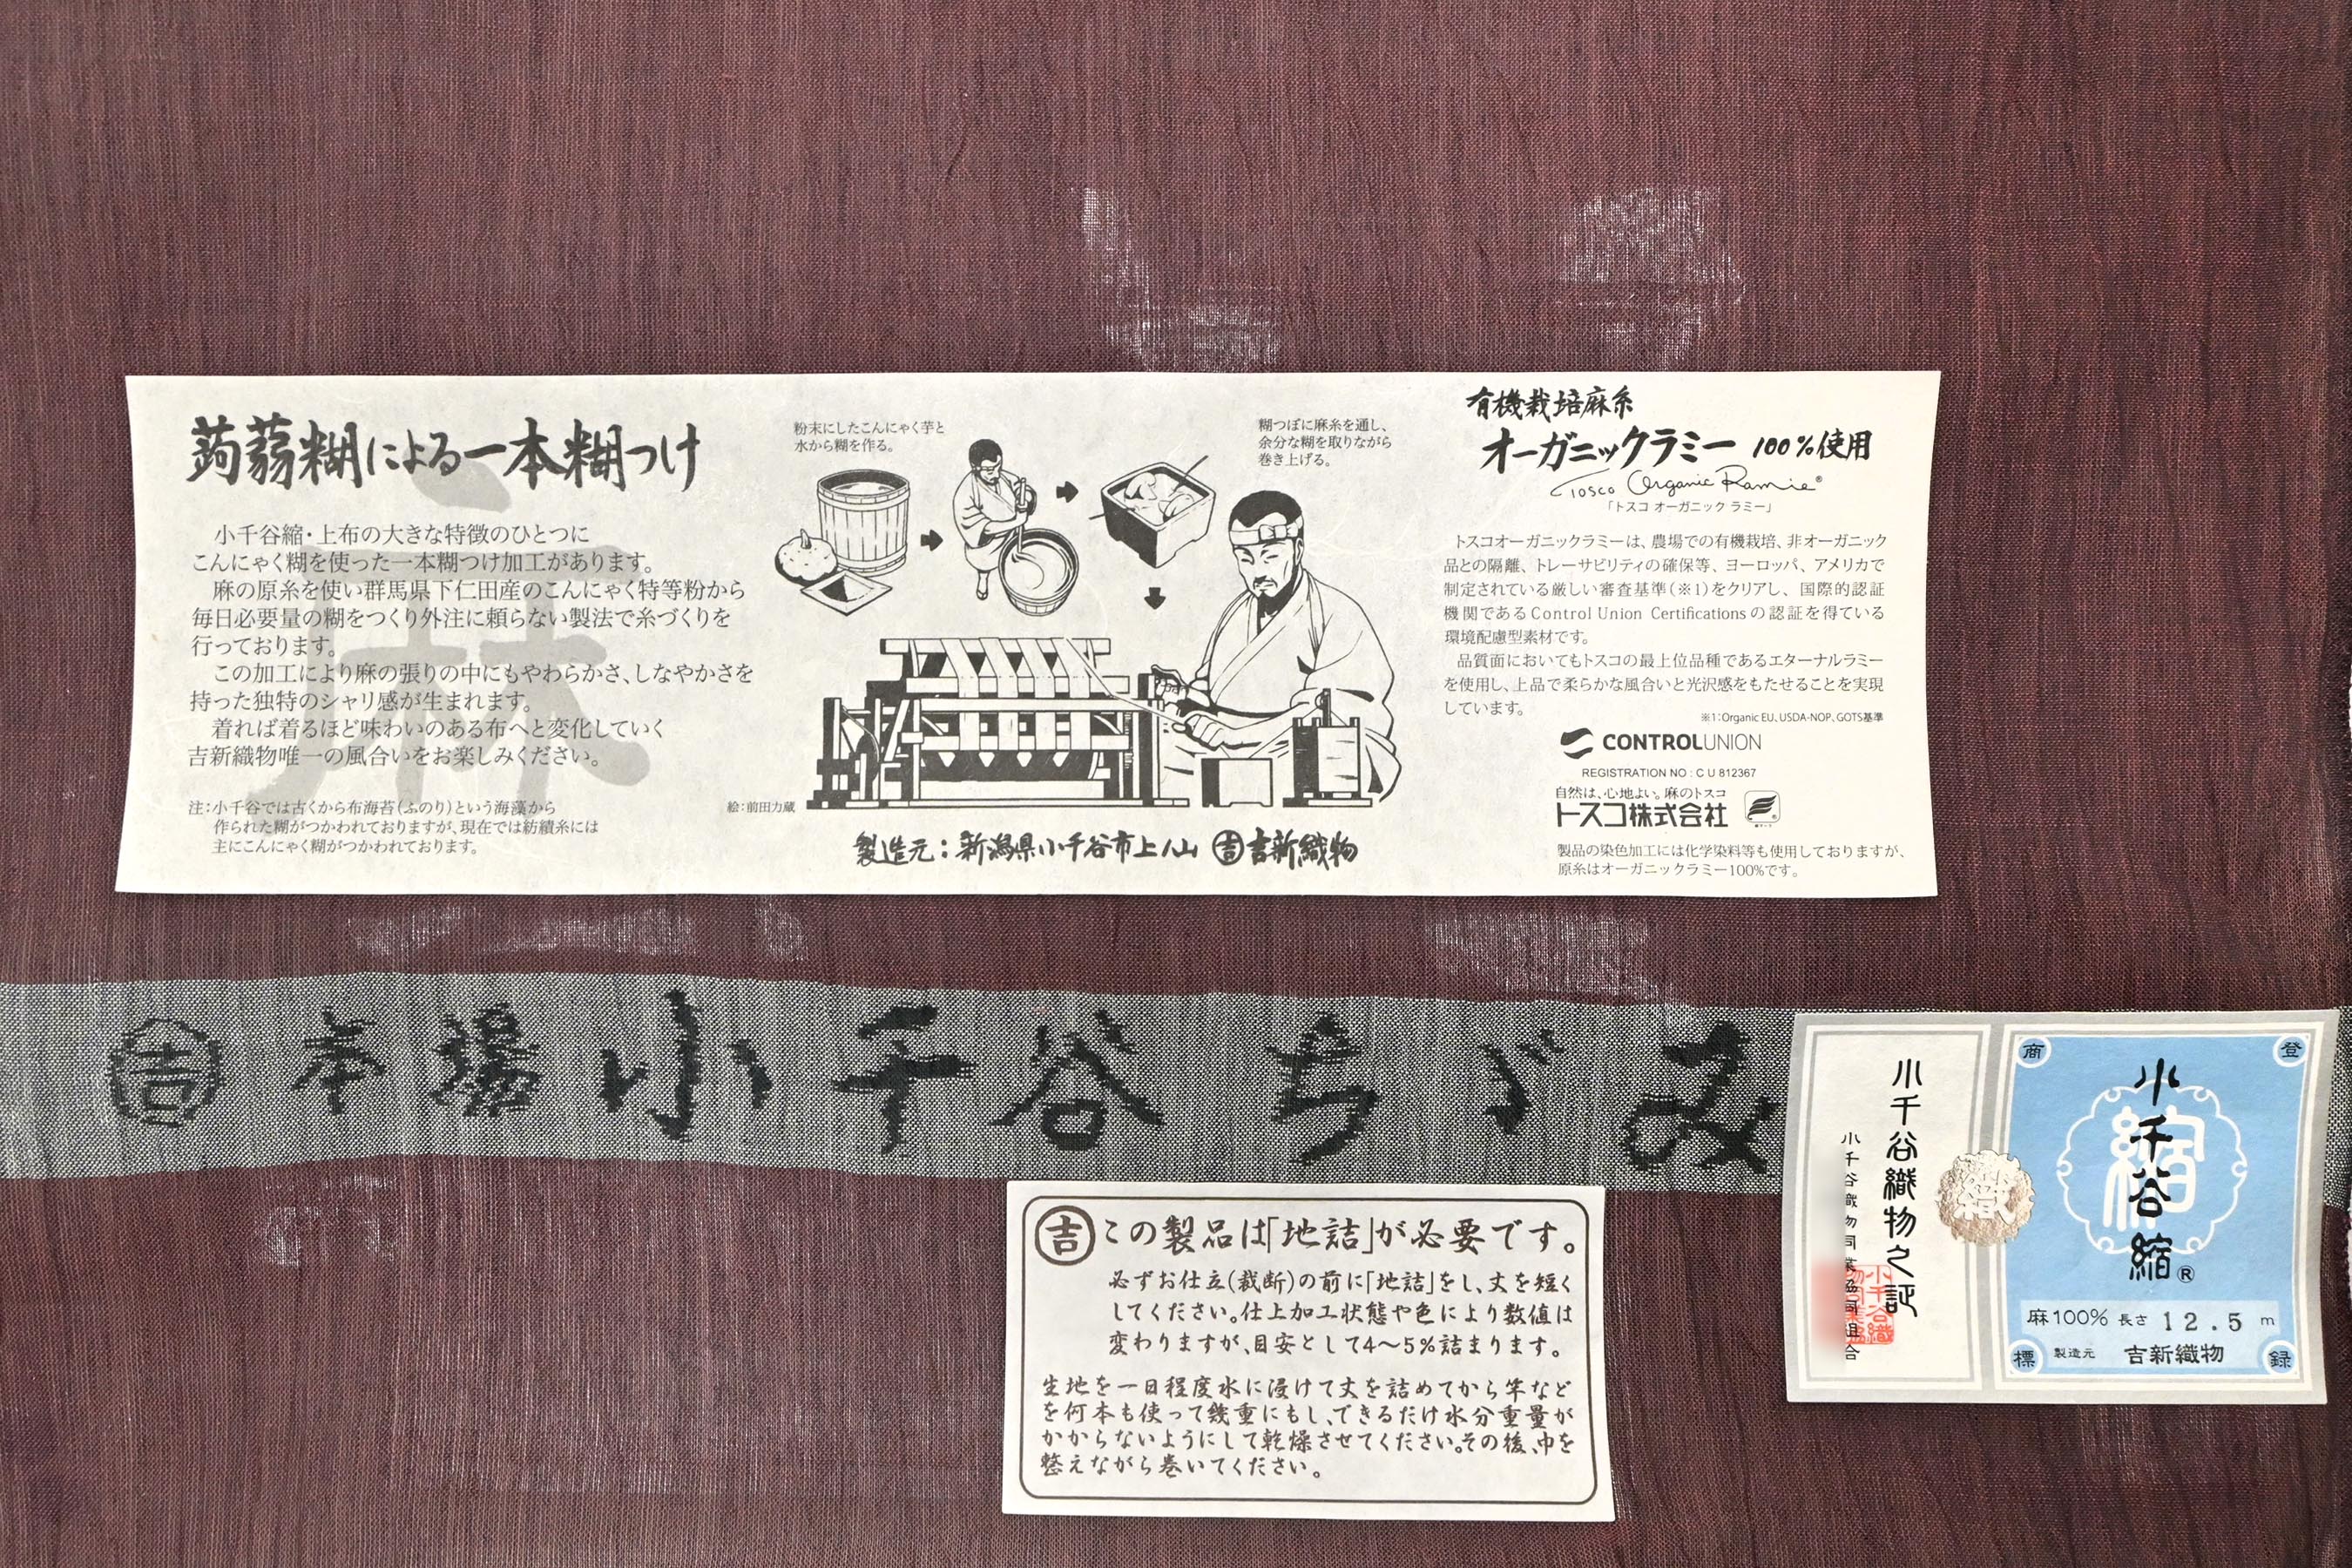 蒟蒻糊による一本糊つけ
小千谷縮・上布の大きな特徴のひとつに
こんにゃく糊を使った一本糊つけ加工があります。
麻の原糸を使い群馬県下仁田産のこんにゃく特等粉から
毎日必要量の糊をつくり外注に頼らない製法で糸づくりを
行っております。
この加工により麻の張りの中にもやわらかさ、しなやかさを
持った独特のシャリ感が生まれます。
着れば着るほど味わいのある布へと変化していく
吉新織物唯一の風合いをお楽しみください。
麻
注：小千谷では古くから布海苔（ふのり）という海藻から
作られた糊がつかわれておりますが、現在では紡績糸には
主にこんにゃく糊がつかわれております。
粉末にしたこんにゃく芋と
水から糊を作る。
糊つぼに麻糸を通し、
余分な糊を取りながら
巻き上げる。
絵：前田力蔵
製造元：新潟県小千谷市上ノ山 吉 吉新織物
有機栽培麻糸
オーガニックラミー 100%使用
Tosco Organic Ramie®
「トスコ オーガニック ラミー」
トスコオーガニックラミーは、農場での有機栽培、非オーガニック
品との隔離、トレーサビリティの確保等、ヨーロッパ、アメリカで
制定されている厳しい審査基準（※1）をクリアし、国際的認証
機関であるControl Union Certificationsの認証を得ている
環境配慮型素材です。
品質面においてもトスコの最上位品種であるエターナルラミー
を使用し、上品で柔らかな風合いと光沢感をもたせることを実現
しています。
※1：Organic EU、USDA-NOP、GOTS基準
CONTROLUNION
REGISTRATION NO : C U 812367
自然は、心地よい。麻のトスコ
トスコ株式会社
製品の染色加工には化学染料等も使用しておりますが、
原糸はオーガニックラミー100%です。
吉 本場小千谷ちゞみ
吉 この製品は「地詰」が必要です。
必ずお仕立（裁断）の前に「地詰」をし、丈を短く
してください。仕上加工状態や色により数値は
変わりますが、目安として4～5%詰まります。
生地を一日程度水に浸けて丈を詰めてから竿など
を何本も使って幾重にもし、できるだけ水分重量が
かからないようにして乾燥させてください。その後、巾を
整えながら巻いてください。
小千谷織物之証
小千谷織物同業協同組合
織
登録商標
縮
小千谷縮®
麻100% 長さ 12.5 m
製造元 吉新織物